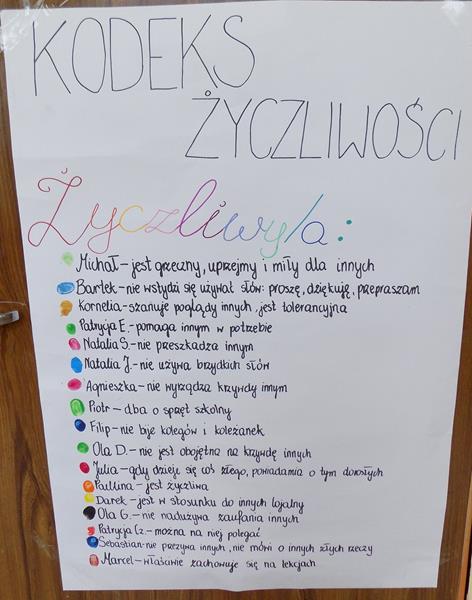 KODEKS
ŻYCZLIWOŚCI
Życzliwy/a:
Michał - jest grzeczny, uprzejmy i miły dla innych
Bartek - nie wstydzi się używać słów: proszę, dziękuję, przepraszam
Kornelia - szanuje poglądy innych, jest tolerancyjna
Patrycja E. - pomaga innym w potrzebie
Natalia S. - nie przeszkadza innym
Natalia J. - nie używa brzydkich słów
Agnieszka - nie wyrządza krzywdy innym
Piotr - dba o sprzęt szkolny
Filip - nie bije kolegów i koleżanek
Ola D. - nie jest obojętna na krzywdę innych
Julia - gdy dzieje się coś złego, powiadamia o tym dorosłych
Paulina - jest życzliwa
Darek - jest w stosunku do innych lojalny
Ola G. - nie nadużywa zaufania innych
Patrycja Cz. - można na niej polegać
Sebastian - nie przezywa innych, nie mówi o innych złych rzeczy
Marcel - właściwie zachowuje się na lekcjach